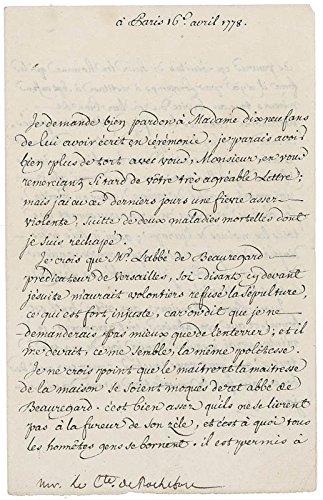 à Paris 16e. avril 1778.
Je demande bien pardon à Madame dixneufans
de lui avoir écrit en cérémonie; je parais avoir
bien plus de tort avec vous, Monsieur, en vous
remerciant si tard de votre très agréable Lettre;
mais j'ai eu ces derniers jours une fievre assez
violente, suitte de deux maladies mortelles dont
je suis réchapé.
Je crois que Mr. L'abbé de Beauregard
prédicateur de Versailles, soi disant cydevant
jésuite m'aurait volontiers refusé la sépulture,
ce qui est fort injuste, car on dit que je ne
demanderais pas mieux que de l'enterrer; et il
me devait, ce me semble, la même politesse.
Je ne crois point que le maitre et la maitresse
de la maison se soient moqués de cet abbé de
Beauregard. c'est bien assez qu'ils ne se livrent
pas à la fureur de son zèle, et c'est à quoi tous
les honnêtes gens se bornent. il est permis à
mr. le Cte. de Rochefort